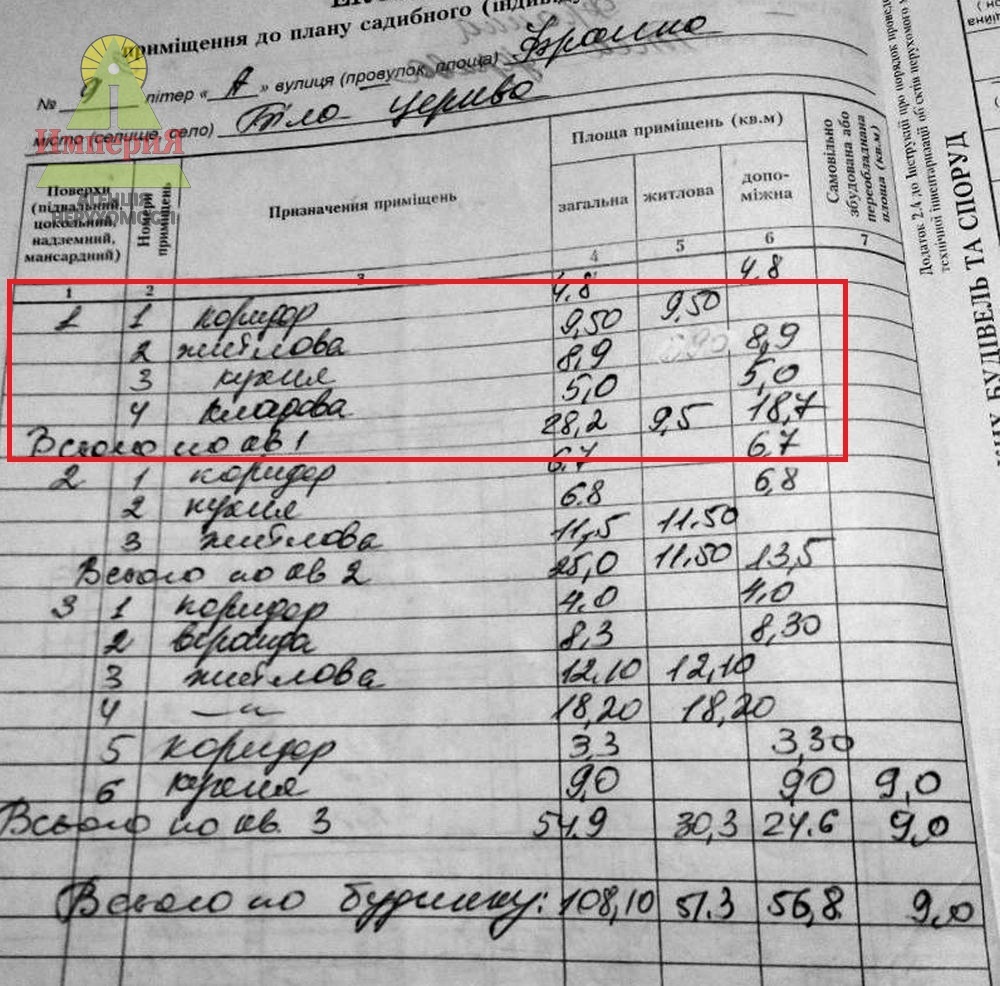 приміщення до плану садибного (індивіду
№ 9 літер « А » вулиця (провулок, площа) Франка
місто (селище, село) Біла Церква
ИмпериЯ
АГЕНЦІЯ
НЕРУХОМОСТІ
Поверхи (підвальний, цокольний, надземний, мансардний)
Номери приміщень
Призначення приміщень
Площа приміщень (кв.м)
загальна житлова допоміжна
Самовільно збудована або переобладнана площа (кв.м)
1 2 3 4 5 6 7
1 1 коридор 4.8 4.8
2 житлова 9,50 9,50
3 кухня 8,9 8,9
4 кладова 5,0 5,0
Всього по кв 1 28,2 9,5 18,7
2 1 коридор 6.7 6,7
2 кухня 6.8 6,8
3 житлова 11,5 11.50
Всього по кв 2 25,0 11,50 13,5
3 1 коридор 4.0 4.0
2 віранда 8,3 8,30
3 житлова 12,10 12,10
4 —"— 18,20 18,20
5 коридор 3,3 3,30
6 кухня 9,0 9,0 9,0
Всього по кв. 3 54.9 30,3 24.6 9,0
Всього по будинку: 108,10 51.3 56,8 9,0
Додаток 2.4 до Інструкції про порядок проведе
технічної інвентаризації об'єктів нерухомого
БУДІВЕЛЬ ТА СПОРУД